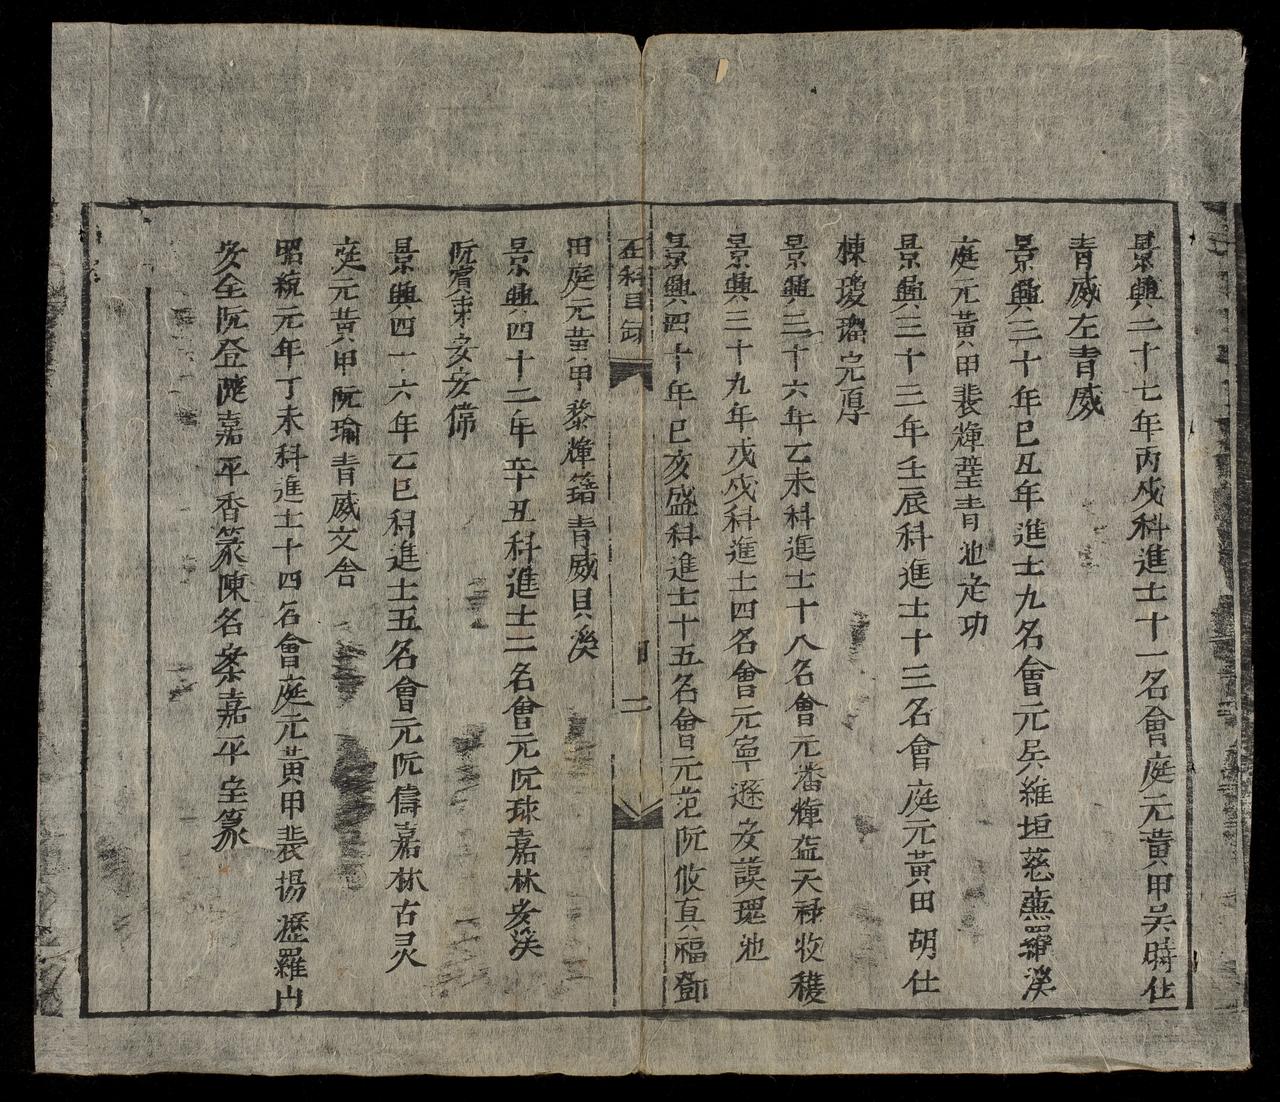 景興二十七年丙戌科進士十一名會庭元黃甲吳時仕
青威左青威
景興三十年己丑年進士九名會元吳維垣慈薰羅溪
庭元黃甲裴輝璧青池定功
景興三十三年壬辰科進士十三名會庭元黃田胡仕
棟瓊瑠完厚
景興三十六年乙未科進士十八名會元潘輝益天祿牧穫
景興三十九年戊戌科進士四名會元寧遜安謨瑰池
景興四十年己亥盛科進士十五名會元范阮攸真福鄧
丕科目录
二
田庭元黃甲黎輝簪青威貝溪
景興四十二年辛丑科進士二名會元阮球嘉林安溪
阮賓東安安偉
景興四十六年乙巳科進士五名會元阮儔嘉林古灵
庭元黃甲阮瑜青威文舍
昭統元年丁未科進士十四名會庭元黃甲裴揚瀝羅山
安全阮登嘉平香篆陳名案嘉平宝篆